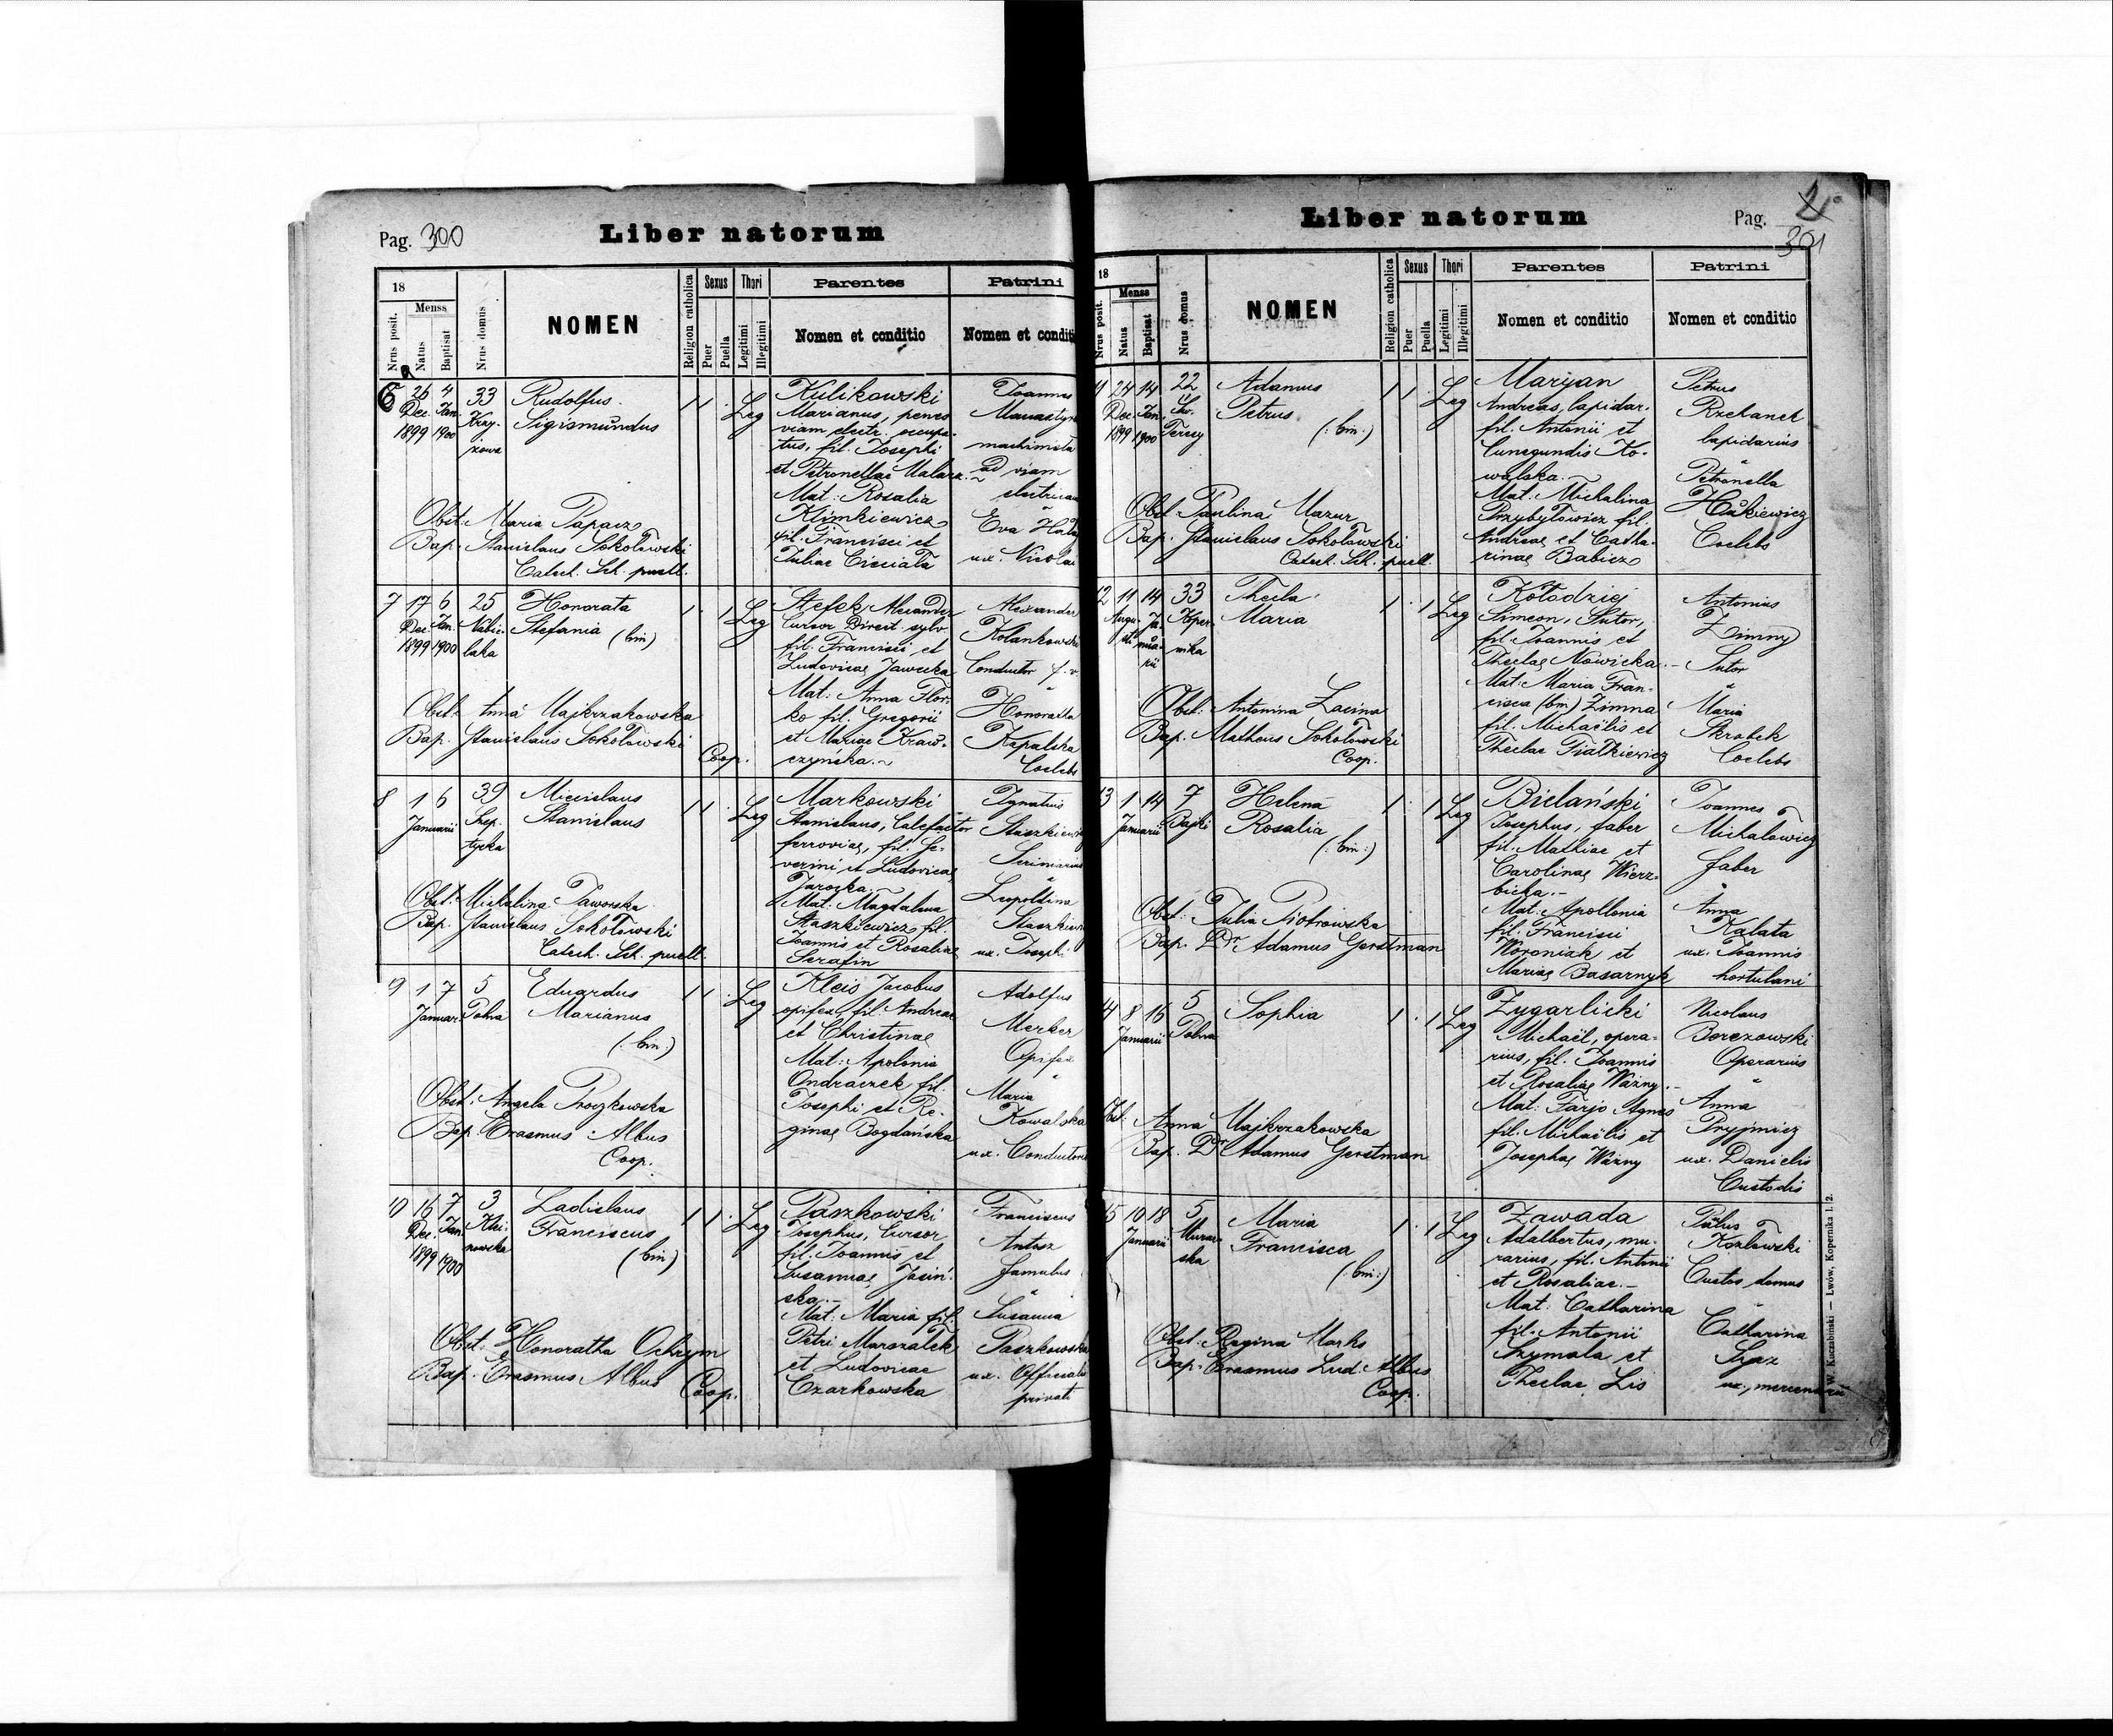 Pag. 300
Liber natorum
18
Mensis
Nrus posit.
Natus
Baptisat
Nrus domus
NOMEN
Religion catholica
Sexus
Puer
Puella
Thori
Legitimi
Illegitimi
Parentes
Nomen et conditio
Patrini
Nomen et conditi
6
26 Dec. 1899
4 Jan. 1900
33
Rudolfus
Sigismundus
1 1 Leg
Kulikowski
Marianus, penes
viam electr. occupa-
tus, fil. Josephi
et Petronellae
Mat: Rosalia
Klimkiewicz
fil. Francisci et
Juliae
Joannes
machinista
ad viam
Eva
ux. Nicolai
Obst: Maria Paparz
Bap. Stanislaus Sokołowski
Catech. Sch. puell.
7
17 Dec. 1899
6 Jan. 1900
25
Nabielaka
Honorata
Stefania (bin)
1 1 Leg
Stefek Alexander
Cursor Direct. sylv.
fil. Francisci et
Ludovicae Jawecka
Mat: Anna Flor-
ko fil. Gregorii
et Mariae Kraw-
czyńska.
Alexander
Kolankowski
Conductor
Honoratta
Kapalska
Coelebs
Obst: Anna Majkrzakowska
Bap. Stanislaus Sokołowski
Coop.
8
1 6
Januarii
39
Szep-
tycka
Miecislaus
Stanislaus
1 1 Leg
Markowski
Stanislaus, Calefactor
ferroviae, fil. Se-
verini et Ludovicae
Mat: Magdalena
Staszkiewicz fil.
Joannis et Rosaliae
Serafin
Ignatius
Staszkiewicz
Leopoldina
ux. Josephi
Obst: Michalina Jaworska
Bap. Stanislaus Sokołowski
Catech. Sch. puell.
9
1 7
Januar.
5
Polna
Eduardus
Marianus
(: bin :)
1 1 Leg
Kleis Jacobus
opifex, fil. Andreae
et Christinae
Mat: Apolonia
Ondraczek fil.
Josephi et Re-
ginae Bogdańska
Adolfus
Merker
Opifex
Maria
Kowalska
ux. Conductoris
Obst: Angela Proczkowska
Bap. Erasmus Albus
Coop.
10
16 Dec. 1899
7 Jan. 1900
3
Ladislaus
Franciscus
(bin)
1 1 Leg
Paszkowski
Josephus, Cursor
fil. Joannis et
Susannae Jasiń-
ska.-
Mat: Maria fil.
Petri Marszałek
et Ludovicae
Czarkowska
Franciscus
Antosz
famulus
Susanna
Paszkowska
ux. Officialis
privati
Obst: Honoratha Ochrym
Bap. Erasmus Albus
Coop.
Liber natorum
Pag. 301
18
Mensis
Nrus posit.
Natus
Baptisat
Nrus domus
NOMEN
Religion catholica
Sexus
Puer
Puella
Thori
Legitimi
Illegitimi
Parentes
Nomen et conditio
Patrini
Nomen et conditio
24 Dec. 1899
14 Jan. 1900
22
Św.
Teresy
Adamus
Petrus
(: bin :)
1 1 Leg
Maryan
Andreas, lapidar.
fil. Antonii et
Cunegundis Ko-
walska.-
Mat: Michalina
Przybyłowicz fil.
Andreae et Catha-
rinae Babicz
Petrus
Rzehanek
lapidarius
Petronella
Coelebs
Obst: Paulina Mazur
Bap. Stanislaus Sokołowski
Catech. Sch. puell.
12
11 Augusti
14 Januarii
33
Koper-
nika
Thecla
Maria
1 1 Leg
Kołodziej
Simeon, Sutor,
fil. Joannis et
Theclae Nowicka.-
Mat: Maria Fran-
cisca (bin) Zimna
fil. Michaëlis et
Theclae Fiałkiewicz
Antonius
Zimny
Sutor
Maria
Skrabek
Coelebs
Obst: Antonina Lacina
Bap. Matheus Sokołowski
Coop.
13
1 14
Januarii
7
Bajki
Helena
Rosalia
(: bin :)
1 1 Leg
Bielański
Josephus, faber
fil. Mathiae et
Carolinae Wierz-
bicka.-
Mat: Apollonia
fil. Francisci
Woroniak et
Mariae Basarnyk
Joannes
Michałowicz
faber
Anna
Kałata
ux. Joannis
hortulani
Obst: Julia Piotrowska
Bap. Dr Adamus Gerstman
14
8 16
Januarii
5
Polna
Sophia
1 1 Leg
Zygarlicki
Michaël, opera-
rius, fil. Joannis
et Rosaliae Ważny.-
Mat: Farjo Agnes
fil. Michaëlis et
Josephae Ważny
Nicolaus
Berezowski
Operarius
Anna
Pryjmicz
ux. Danielis
Custodis
Obst: Anna Majkrzakowska
Bap. Dr Adamus Gerstman
15
10 18
Januarii
5
Murar-
ska
Maria
Francisca
(: bin :)
1 1 Leg
Zawada
Adalbertus, mu-
rarius, fil. Antonii
et Rosaliae.-
Mat: Catharina
fil. Antonii
Szymala et
Theclae Lis
Paulus
Kozłowski
Custos domus
Catharina
ux. mercenarii
Obst: Regina Marks
Bap. Erasmus Lud. Albus
Coop.
W. Kuczabiński — Lwów, Kopernika l. 2.